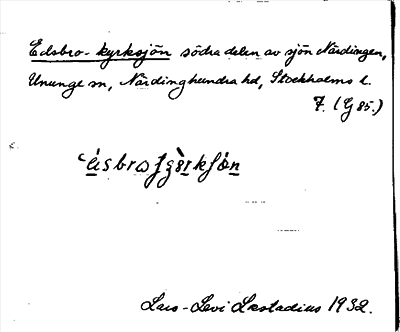 Edsbro-kyrksjön södra delen av sjön Närdingen,
Ununge sn, Närdinghundra hd, Stockholms l.
7. (G 85.)
Lars-Levi Læstadius 1932.